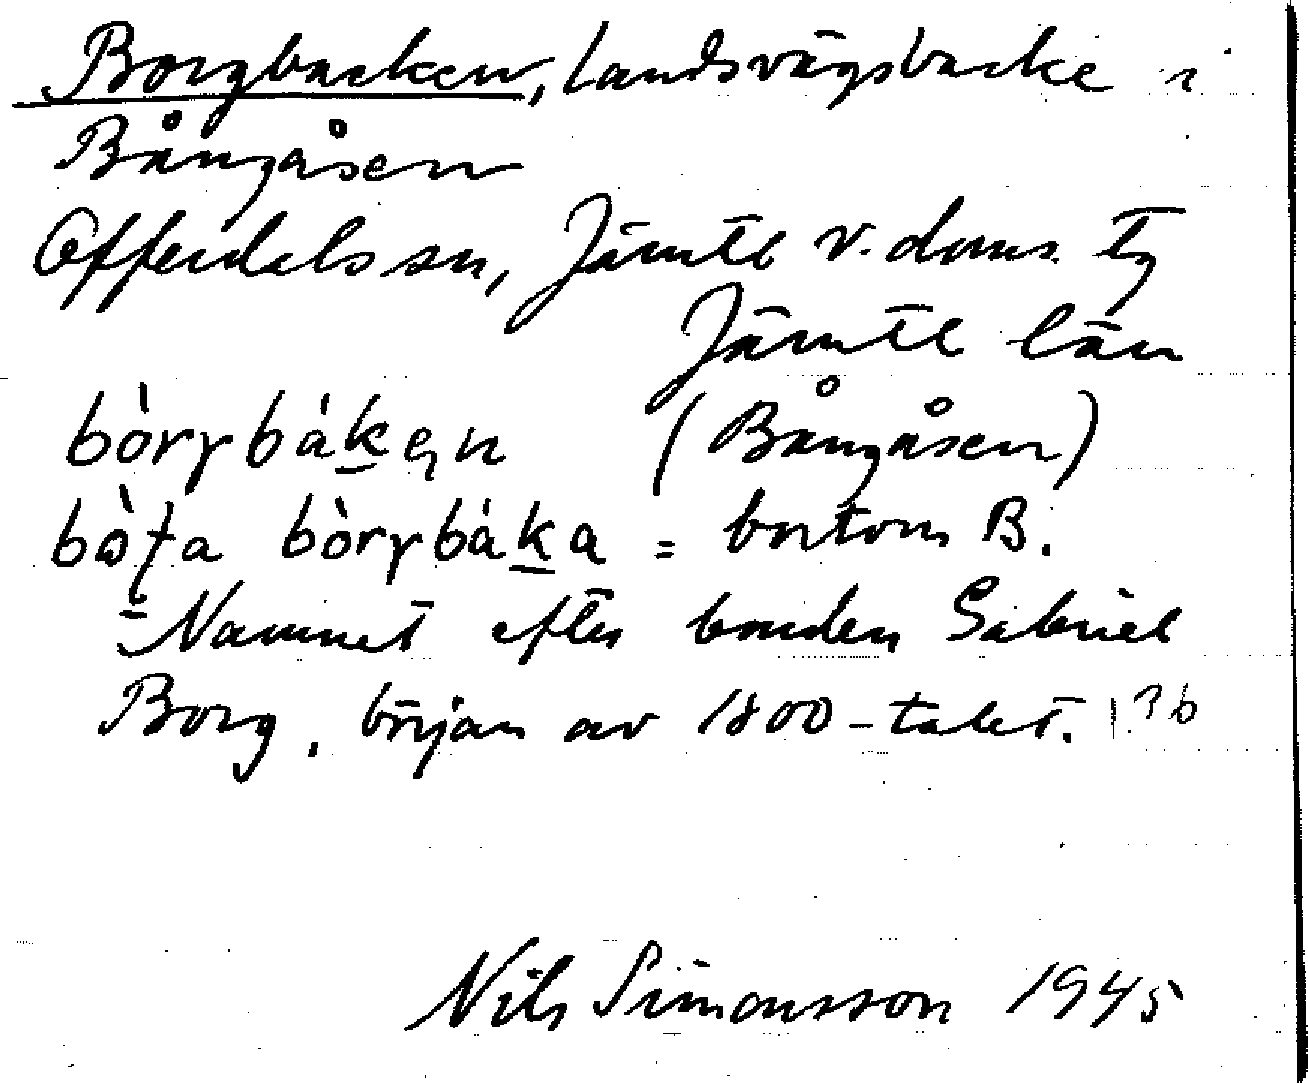 Borgbacken, landsvägsbacke i
Bångåsen
Offerdals sn, Jämtl v. doms. tg
Jämtl län
bòrybáken (Bångåsen)
bòrybáka = bortom B.
Namnet efter bonden Gabriel
Borg, början av 1800-talet.
Nils Simonsson 1945